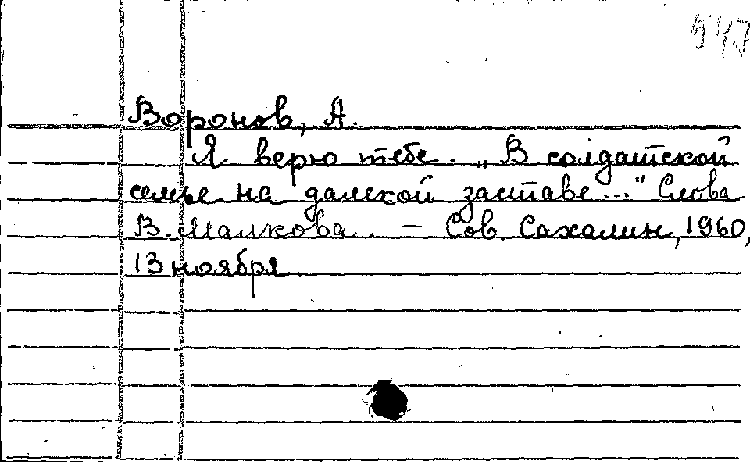 947
Воронов, А.
Я верю тебе. „В солдатской
семье на далекой заставе..." Слова
В. Малкова. – Сов. Сахалин, 1960,
13 ноября